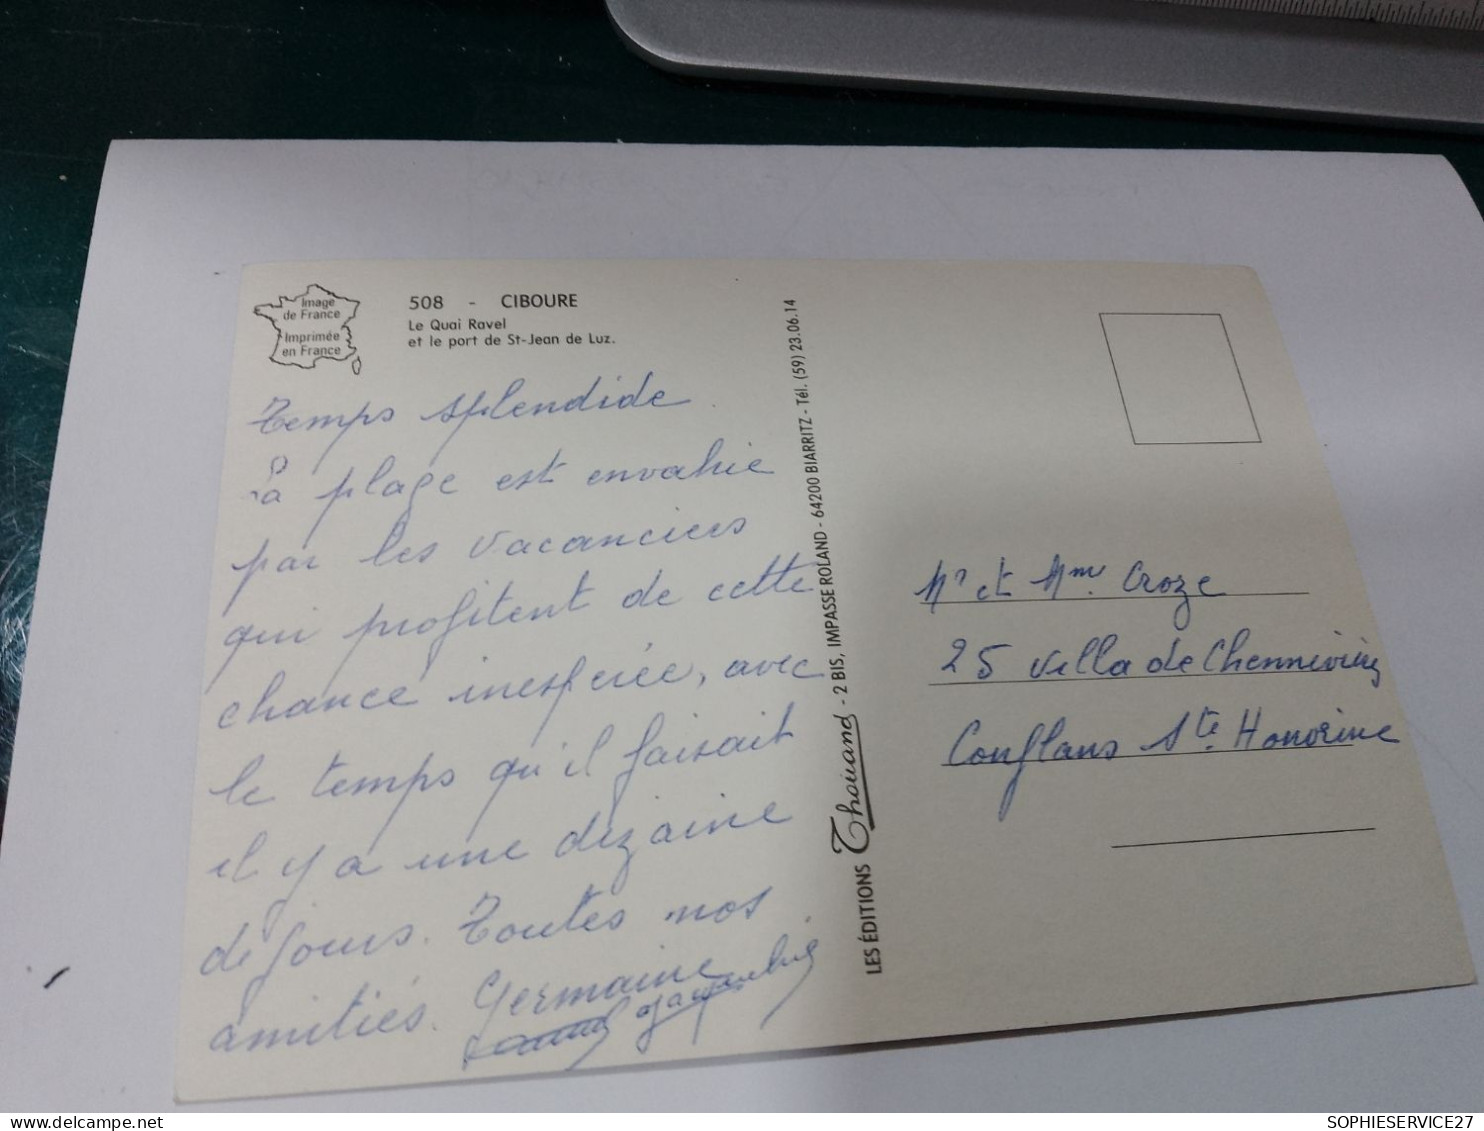 Image
de France
Imprimée
en France
508 - CIBOURE
Le Quai Ravel
et le port de St-Jean de Luz.
Temps splendide.
La plage est envahie
par les vacanciers
qui profitent de cette
chance inespérée, avec
le temps qu'il faisait
il y a une dizaine
de jours. Toutes nos
amitiés. Germaine
LES ÉDITIONS Thouand - 2 BIS, IMPASSE ROLAND - 64200 BIARRITZ - Tél. (59) 23.06.14
Mr et Mme. Croze
25 villa de Chennevières
Conflans Ste. Honorine
SOPHIESERVICE27